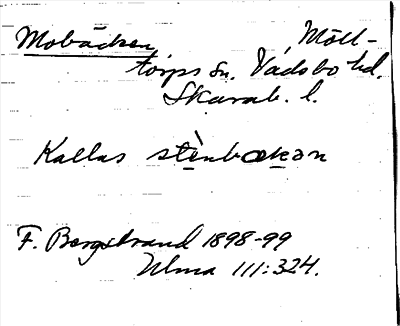 Mobäcken, Möll-
torps sn. Vadsbo hd.
Skarab. l.
Kallas stè̱nbœkan
F. Bergstrand 1898-99
Ulma 111:324.